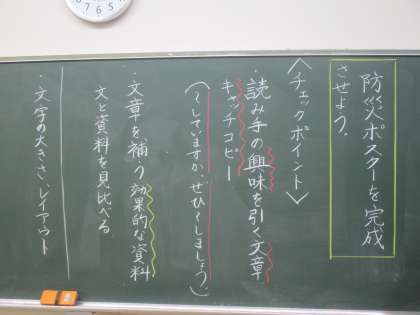 防災ポスターを完成
させよう。
〈チェックポイント〉
・読み手の興味を引く文章
キャッチコピー
(〜していますか、ぜひ〜しましょう)
・文章を補う効果的な資料
文と資料を見比べる
・文字の大きさ、レイアウト
5
6
7
8